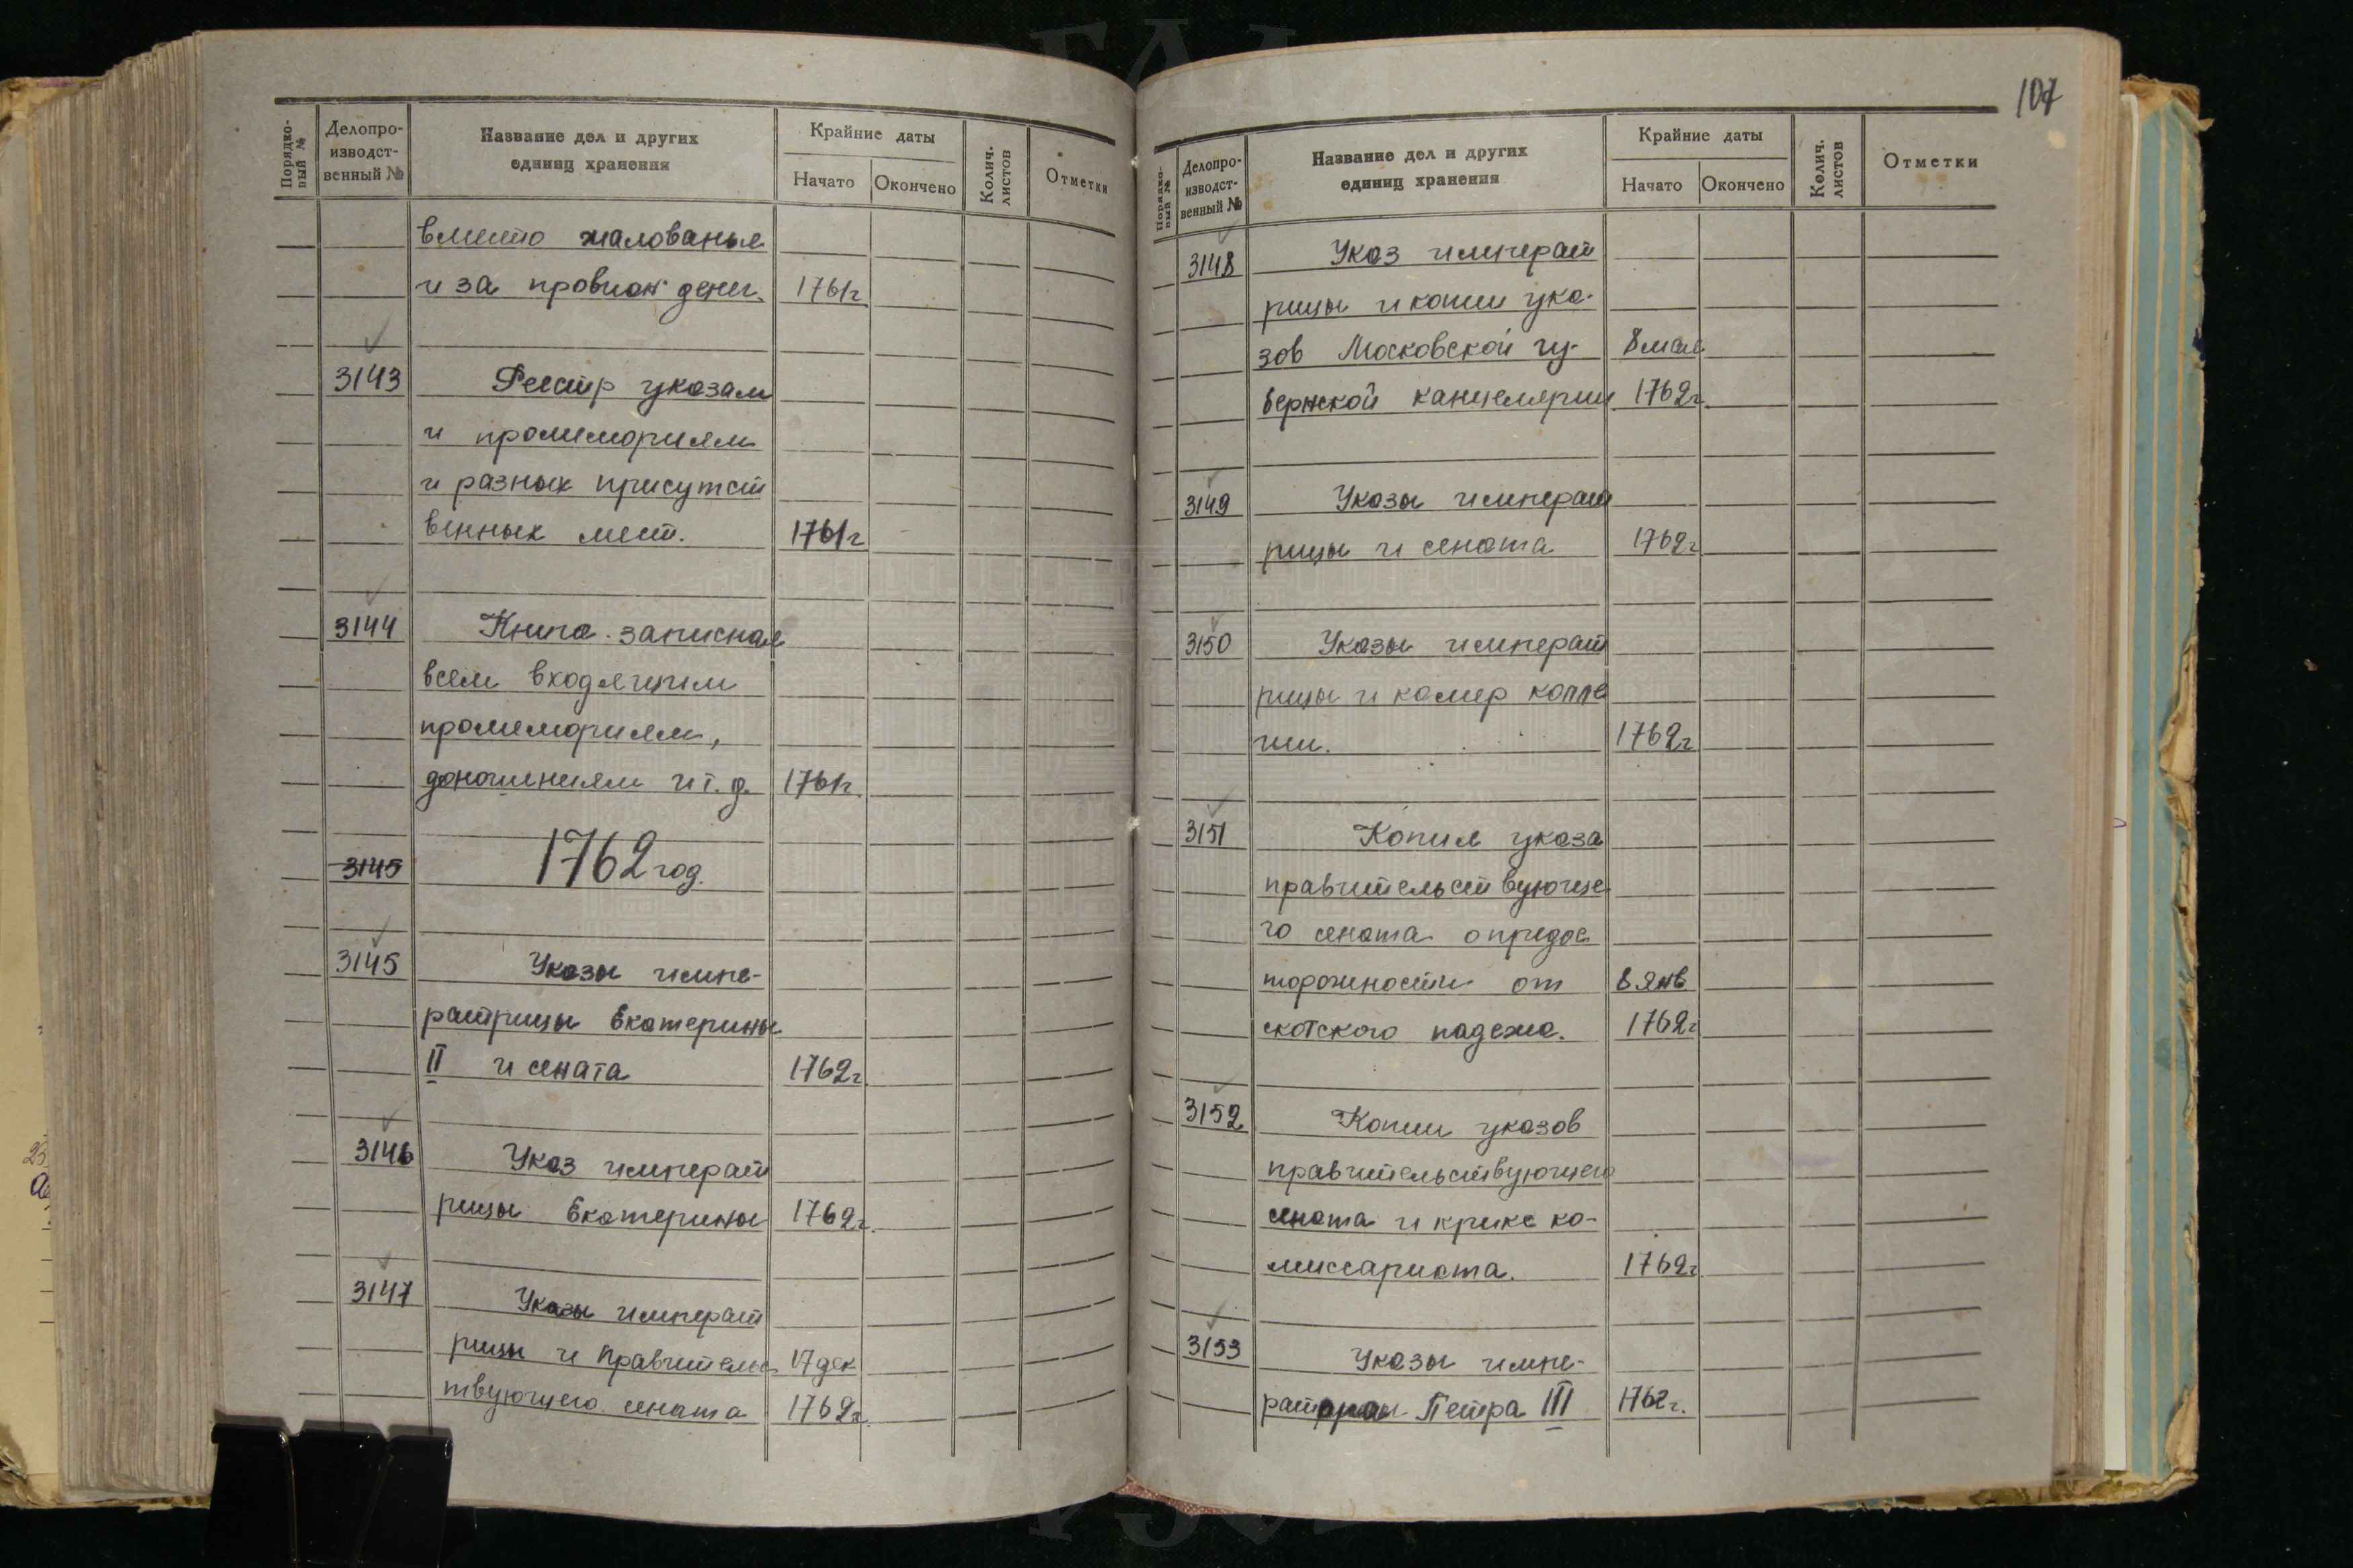 107
Порядко-
вый №
Делопро-
изводст-
венный №
Название дел и других
единиц хранения
Крайние даты
Начато Окончено
Колич.
листов
Отметки
вместо жалованья
и за провиан денег. 1761г
3143 Реестр указам
и промемориям
и разных присутст
венных мест. 1761г
3144 Книга записная
всем входящим
промемориям,
доношениям и т. д. 1761г.
3145 1762 год.
3145 Указы импе-
ратрицы Екатерины
II и сената 1762г.
3146 Указ императ
рицы Екатерины 1762г.
3147 Указы императ
рицы и Правительс 17 дек
твующего сената 1762г.
Порядко-
вый №
Делопро-
изводст-
венный №
Название дел и других
единиц хранения
Крайние даты
Начато Окончено
Колич.
листов
Отметки
3148 Указ императ
рицы и копии ука-
зов Московской гу- 8 мая
бернской канцелярии 1762г.
3149 Указы императ
рицы и сената 1762г
3150 Указы императ
рицы и камер колле
гии. 1762г
3151 Копия указа
правительствующе
го сената о предос
торожности от 8 Янв
скотского падежа. 1762г
3152 Копии указов
правительствующего
сената и крикс ко-
миссариата. 1762г
3153 Указы импе-
ратора Петра III 1762г.